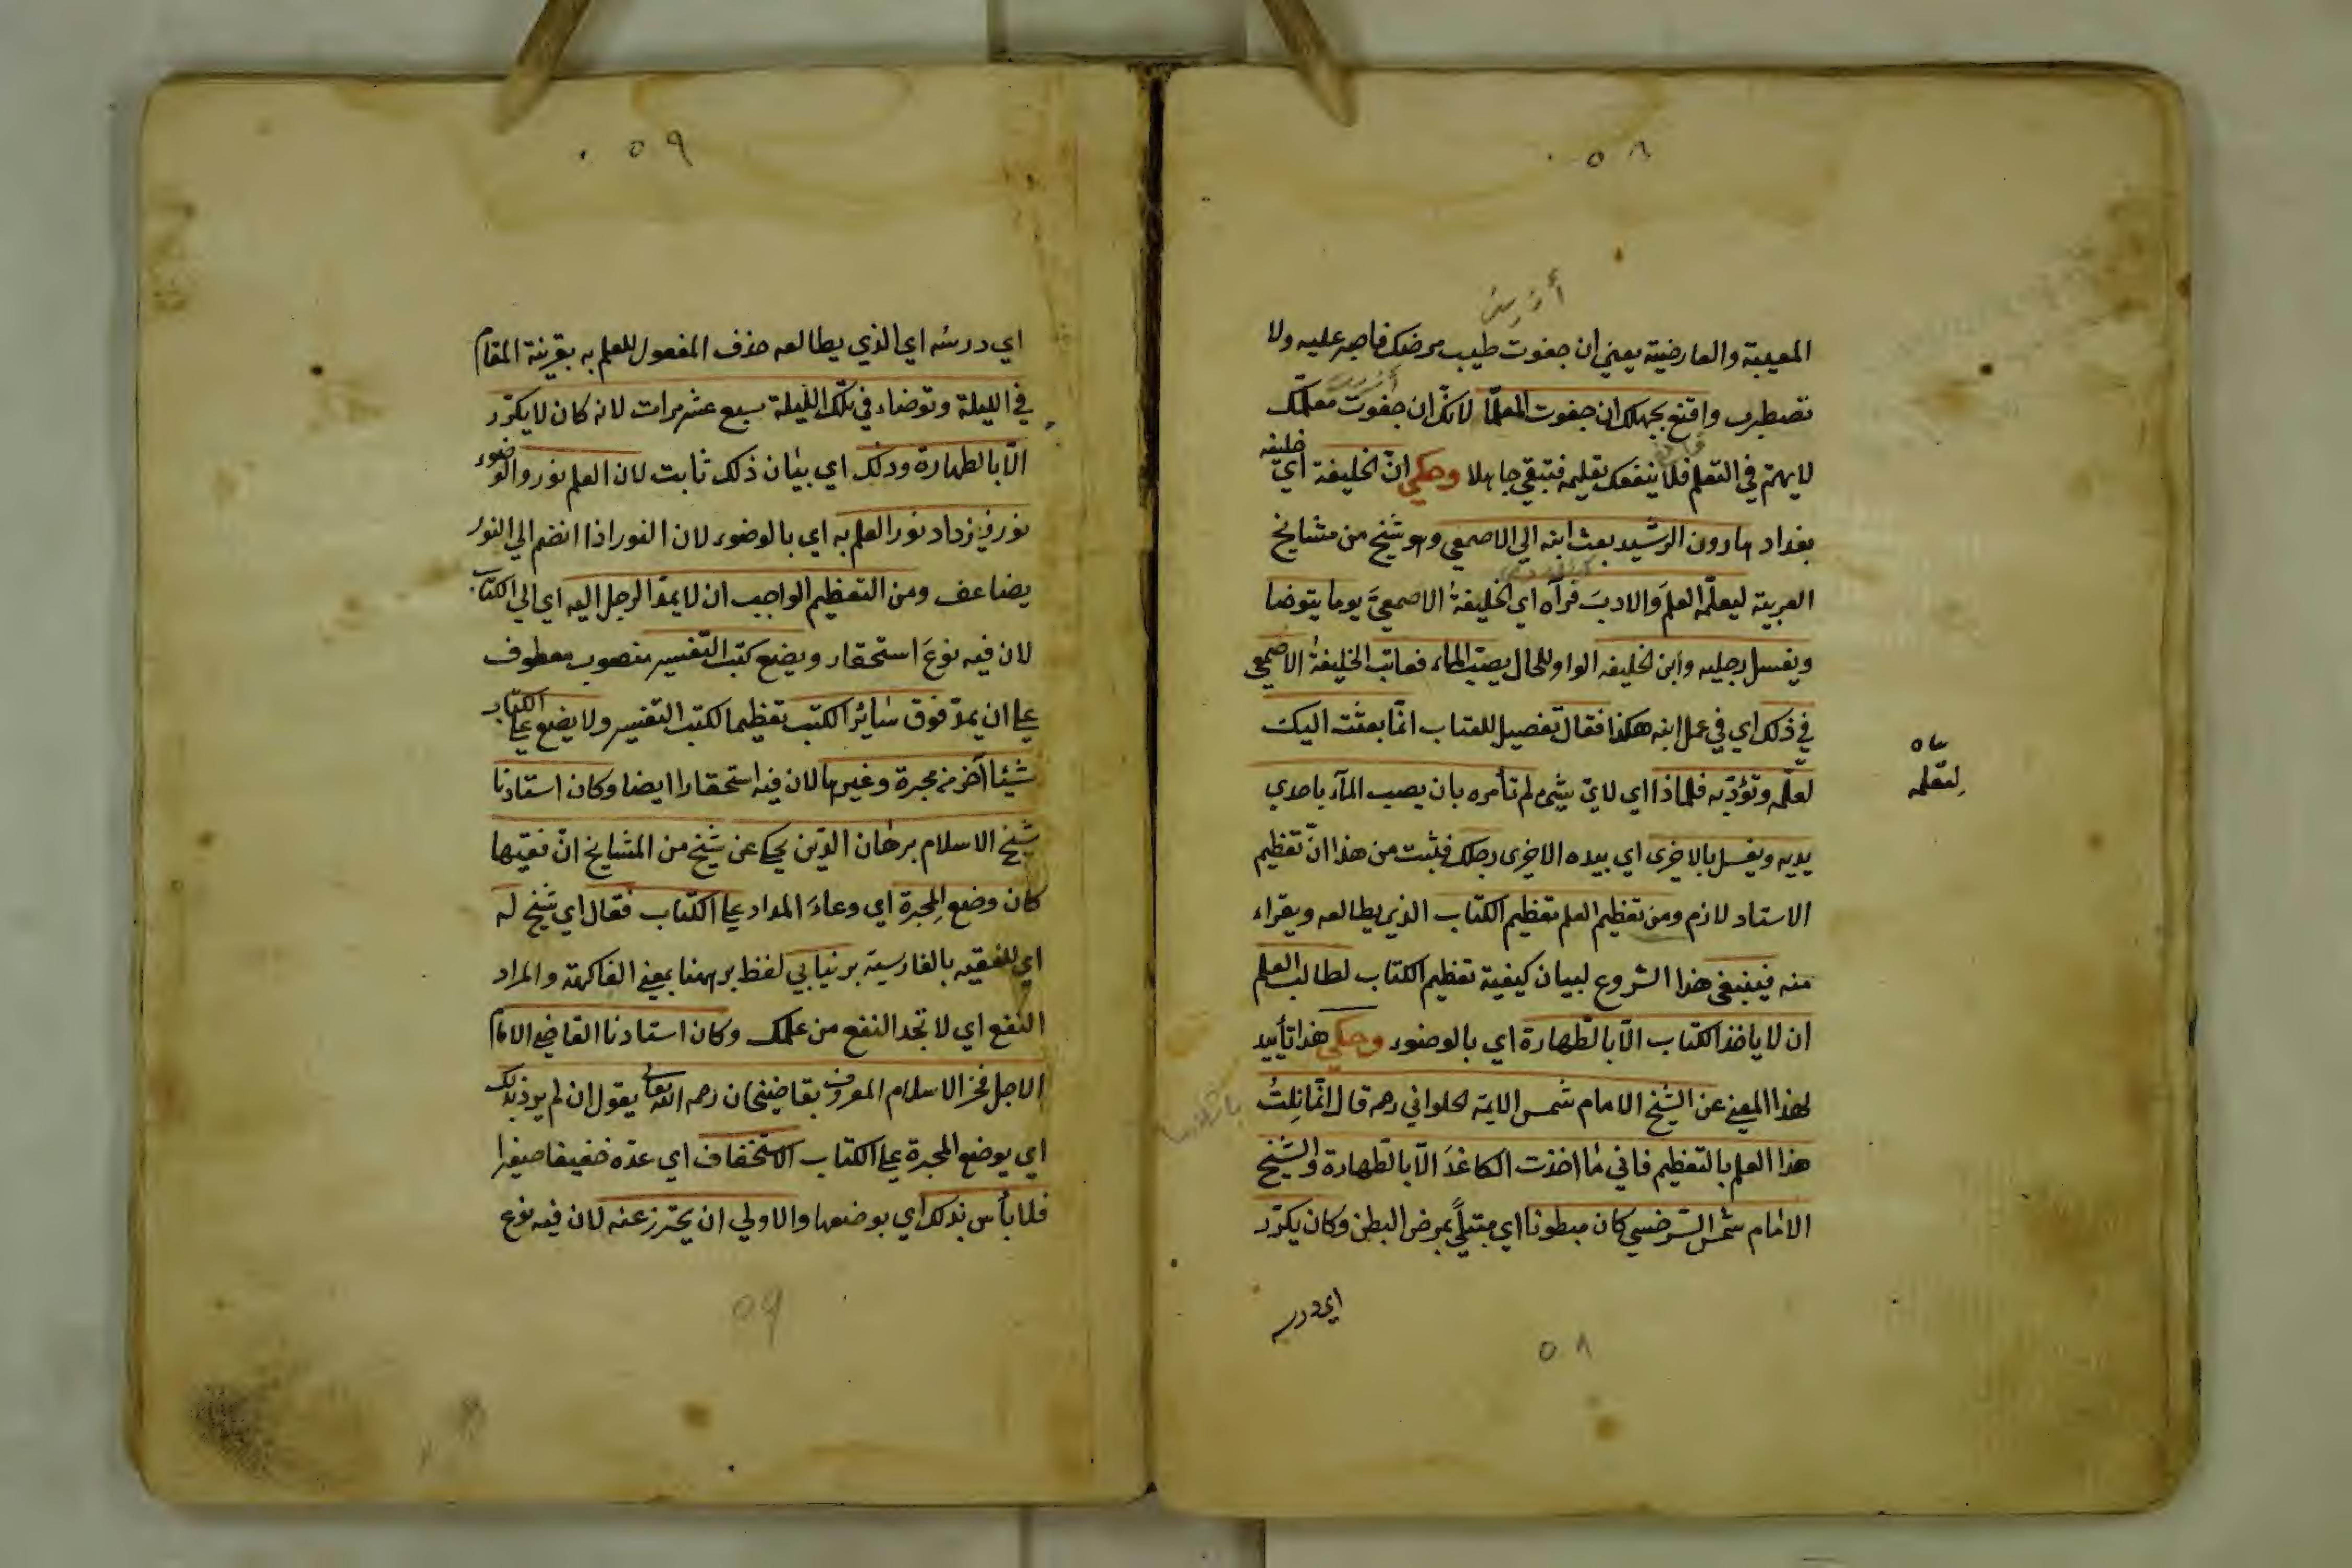 ٠٥٨
المعيبة والعارضية يعني ان جفوت طبيب مرضك فاصبر عليه ولا
تضطرب واقنع بجهلك ان جفوت المعلما لانك ان جفوت معلمك
لا يهتم في التعلم فلا ينفعك تعليمه فتبقي جاهلا وحكي انّ الخليفة اي خليفه
بغداد هارون الرشيد بعث ابنه الي الاصمعي وهو شيخ من مشايخ
العربية ليعلّمه العلمَ والادبَ فرآه اي الخليفةُ الاصمعيَّ يوما يتوضا
ويغسل رجليه وابن الخليفه الواو للحال يصبّ الماء فعاتب الخليفةُ الاصمعي
في ذلك اي في عمل ابنه هكذا فقال تفصيل للعتاب انّما بعثت اليك
لتعلّمه وتؤدّبه فلماذا اي لايّ شيء لم تأمره بان يصب المآء باحدي
لتعلمه
يديه ويغسل بالاخرى اي بيده الاخرى رجلك فثبت من هذا انّ تعظيم
الاستاد لازم ومن تعظيم العلم تعظيم الكتاب الذي يطالعه ويقراء
منه فينبغي هذا الشروع لبيان كيفية تعظيم الكتاب لطالب العلم
ان لا ياخذ الكتاب الّا بالطّهارة اي بالوضوء وحكي هذا تأييد
لهذا المعني عن الشيخ الامام شمس الايمة الحلواني رحمه قال انّما نِلتُ
هذا العلم بالتعظيم فاني ما اخذت الكاغدَ الّا بالطّهارة والشيخ
الامام شمس السّرخسي كان مبطونا اي مبتليً بمرض البطن وكان يكرّر
اي درسه
٥٨
٠٥٩
اي درسه اي الذي يطالعه حذف المفعول للعلم به بقرينة المقام
في الليلة وتوضاء في تلك الليلة سبع عشر مرات لانه كان لا يكرّر
الّا بالطهارة وذلك اي بيان ذلك ثابت لان العلم نور والوضوء
نور فيزداد نور العلم به اي بالوضوء لان النور اذا انضم الي النور
يضاعف ومن التعظيم الواجب ان لا يمدّ الرجل اليه اي الي الكتاب
لان فيه نوعَ استحقار ويضع كتب التّفسير منصوب معطوف
علي ان يمدّ فوق سائر الكتب تعظيما لكتب التفسير ولا يضع علي الكتاب
شيئا آخر من محبرة وغيرها لان فيه استحقارا ايضا وكان استادنا
شيخ الاسلام برهان الدّين يحكي عن شيخ من المشايخ انّ فقيها
كان وضع المحبرة اي وعاءَ المداد علي الكتاب فقال اي شيخ له
اي للفقيه بالفارسية برنيابي لفظ بر ههنا بمعني الفاكهة والمراد
النفع اي لا تجد النفع من علمك وكان استادنا القاضي الامام
الاجل فخر الاسلام المعروف بقاضيخان رحمه الله تعالى يقول ان لم يرد بذلك
اي بوضع المحبرة علي الكتاب الاستخفاف اي عدّه خفيفا صغيرا
فلا بأس بذلك اي بوضعها والاولي ان يحترز عنه لان فيه نوع
٥٩